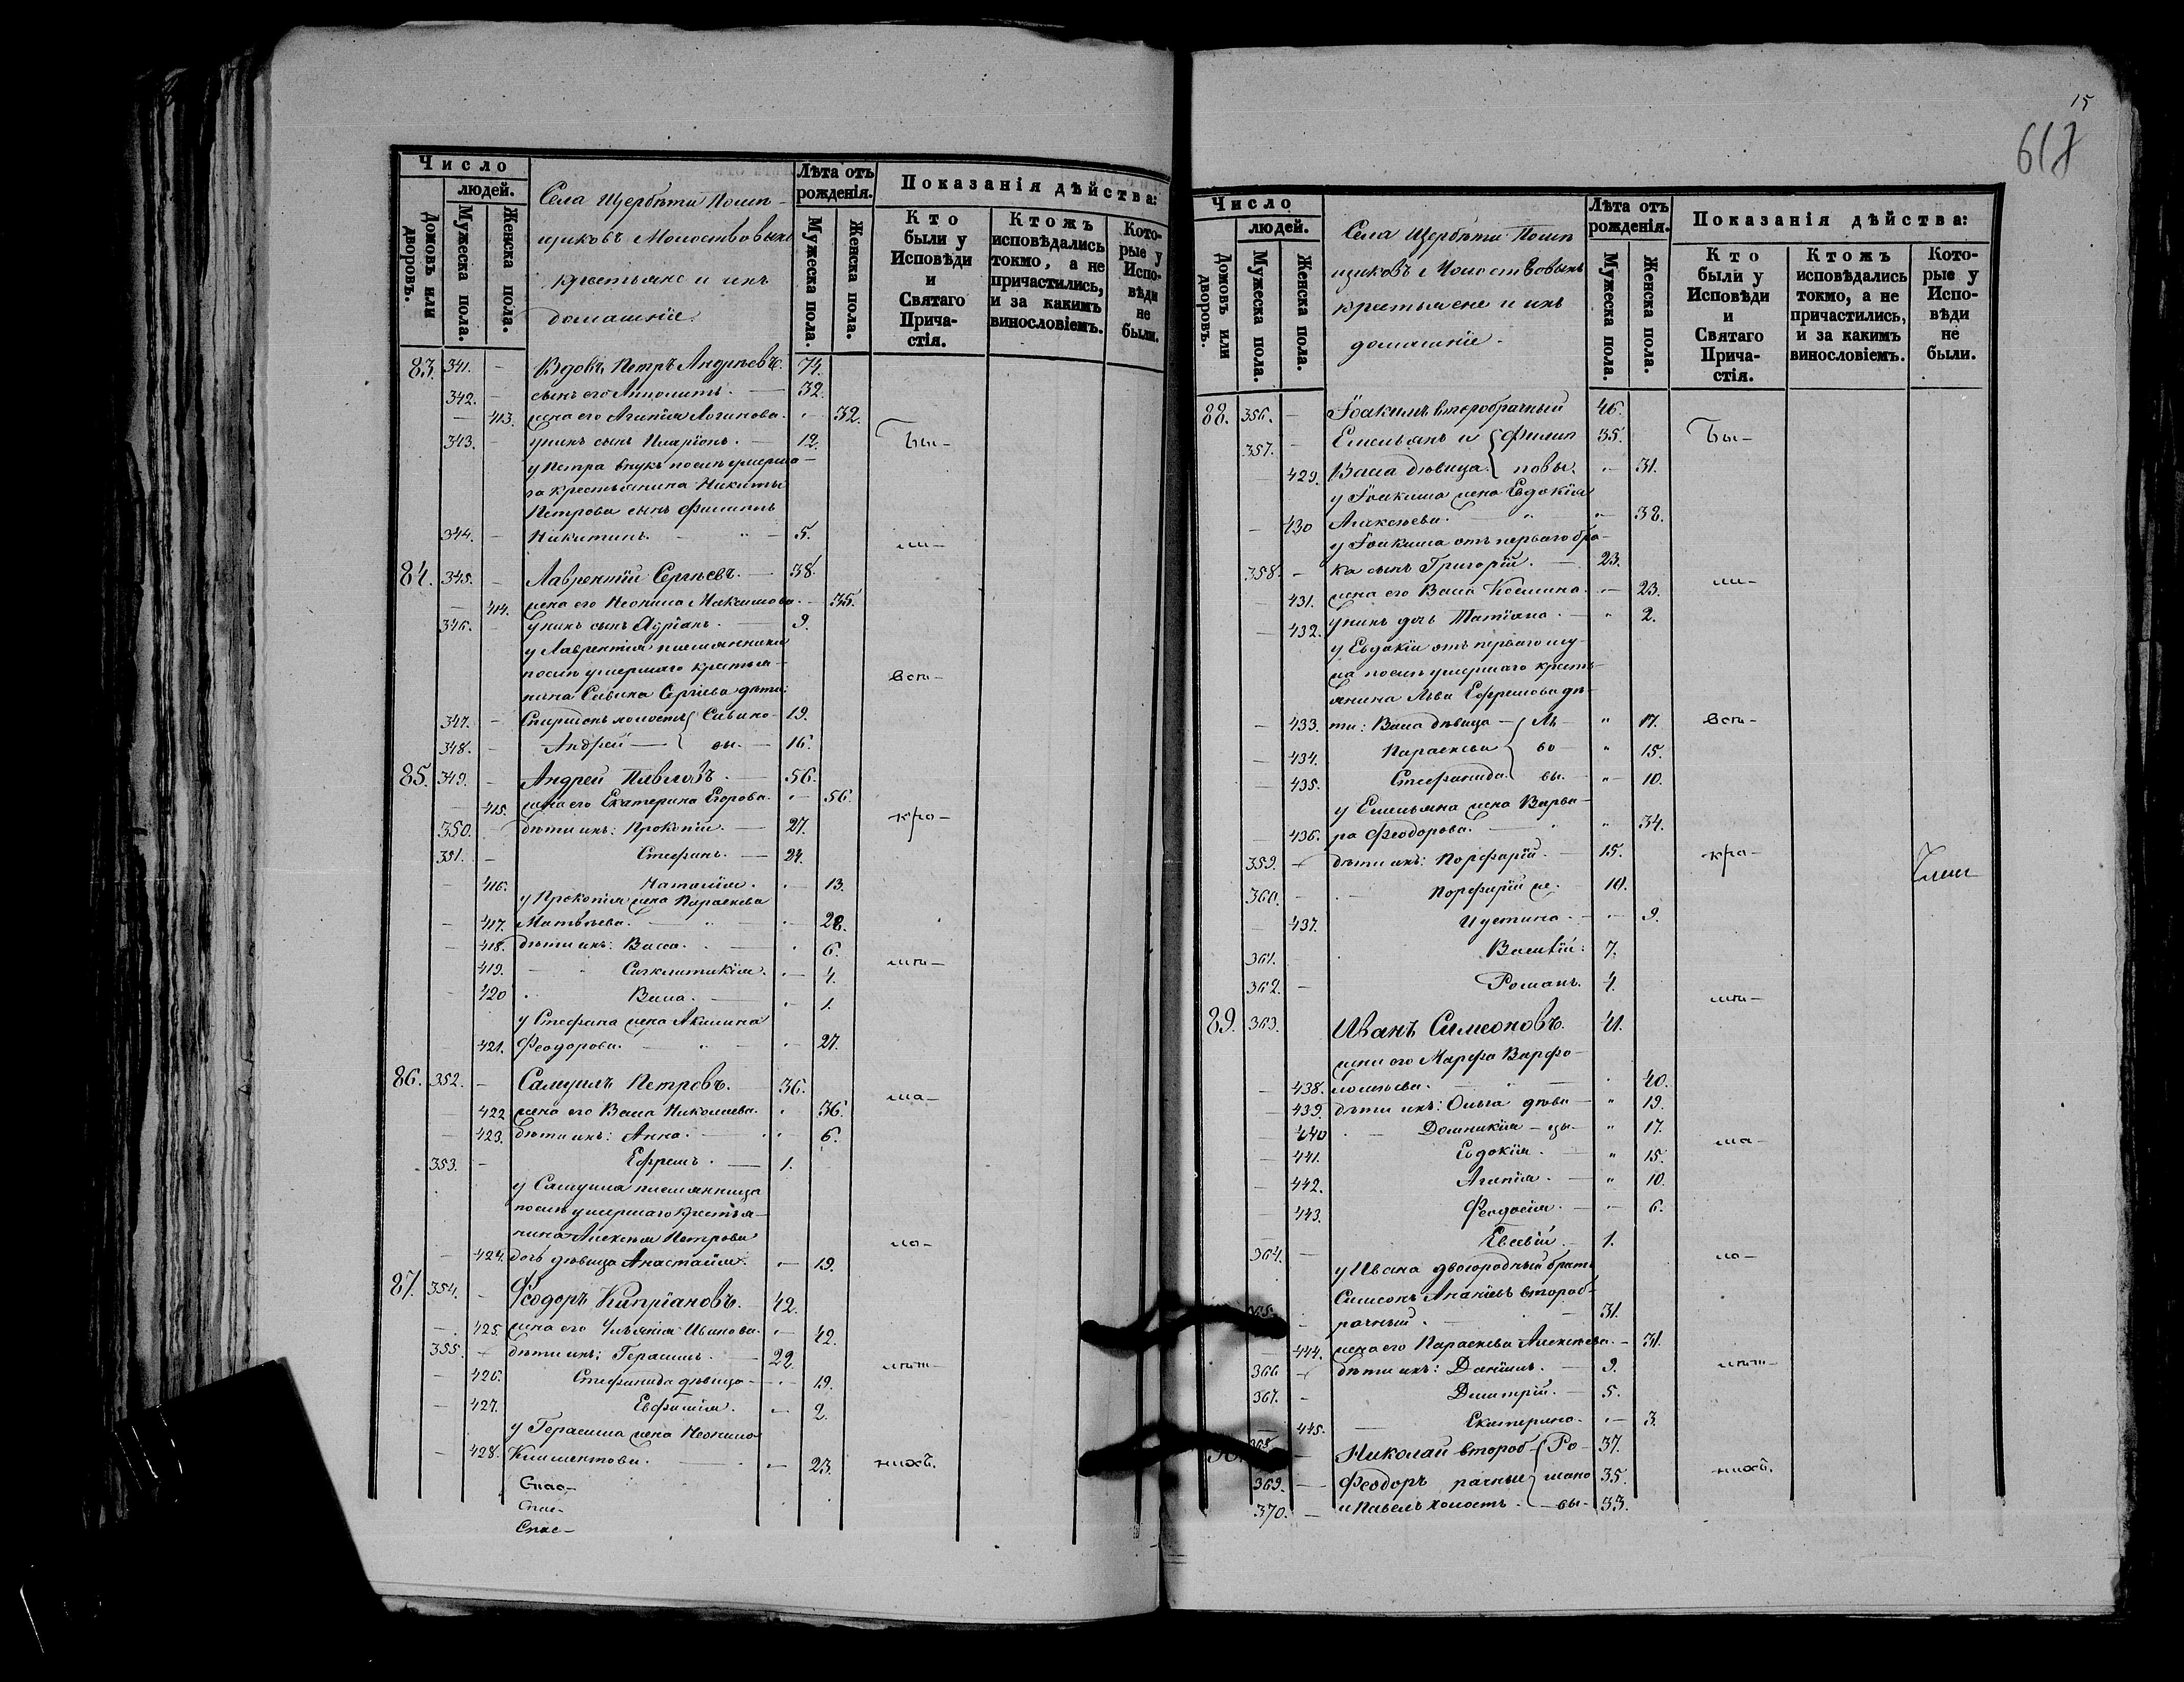 Число
людей.
Домовъ или дворовъ.
Мужеска пола.
Женска пола.
Села Щербѣти Помѣ-
щиковъ Молоствовыхъ
крестьяне и ихъ
домашніе.
Лѣта отъ рожденія.
Мужеска пола.
Женска пола.
Показанія дѣйства:
Кто были у Исповѣди и Святаго Прича-стія.
Ктожъ исповѣдались токмо, а не причастились, и за какимъ винословіемъ.
Кото-рые у Испо-вѣди не были.
83. 341. - Вдовъ Петръ Андреевъ. 74.
342. - сынъ его Ипполитъ. - 32.
- 413. жена его Агапія Логинова. - 32.
343. - у нихъ сынъ Иларіонъ. - 12. Бы-
у Петра внукъ послѣ умерша-
го крестьянина Никиты
Петрова сынъ Филиппъ
344. - Никитинъ. - 5. ли-
84. 345. - Лаврентій Сергѣевъ. - 38.
- 414. жена его Неонила Максимова. - 35.
346. - у нихъ сынъ Адріанъ. - 9.
у Лаврентія племянники
послѣ умершаго крестья-
нина Савина Сергіева дѣти: всѣ-
347. - Спиридонъ холостъ Савино- 19.
348. - Андрей - вы. - 16.
85. 349. - Андрей Павловъ. - 56.
- 415. жена его Екатерина Егорова. - 56.
350. - дѣти ихъ: Прокопій. - 27. кро-
351. - Стефанъ. - 24.
- 416. Наталія. - 13.
у Прокопія жена Параскева
- 417. Матвѣева. - 28.
- 418. дѣти ихъ: Васса. - 6.
419. - Синклитикія. - 4. мѣ-
- 420 Васса. - 1.
у Стефана жена Акилина
421. Феодорова. - 27.
86. 352. - Самуилъ Петровъ. 36.
- 422 жена его Васса Николаева. 36. ма-
- 423. дѣти ихъ: Анна. - 6.
353. - Ефремъ. - 1.
у Самуила племянница
послѣ умершаго крестья-
нина Алексѣя Петрова
- 424. дочь дѣвица Анастасія. - 19. ло-
87. 354. - Феодоръ Кипріановъ. 42.
- 425. жена его Ульянія Иванова. - 42.
355. - дѣти ихъ: Герасимъ. - 22.
- 426. Стефанида дѣвица - 19. лѣт-
- 427. Евфимія. - 2.
у Герасима жена Неонила
- 428. Климентова. - 23. нихъ.
Спас-
Спас-
Спас-
15
617
Число
людей.
Домовъ или дворовъ.
Мужеска пола.
Женска пола.
Села Щербѣти Помѣ
щиковъ Молоствовыхъ
крестьяне и ихъ
домашніе.
Лѣта отъ рожденія.
Мужеска пола.
Женска пола.
Показанія дѣйства:
Кто были у Исповѣди и Святаго Прича-стія.
Ктожъ исповѣдались токмо, а не причастились, и за какимъ винословіемъ.
Кото-рые у Испо-вѣди не были.
88. 356. - Іоакимъ второбрачный 46.
357. - Емельянъ и Филип 35. Бы-
- 429. Васса дѣвица. повы. - 31.
у Іоакима жена Евдокія
- 430 Алексѣева. - 38.
у Іоакима отъ перваго бра-
358. - ка сынъ Григорій. - 23.
- 431. жена его Васса Космина. - 23. ли-
- 432. у нихъ дочь Татіана. - 2.
у Евдокіи отъ перваго му-
жа послѣ умершаго кресть-
янина Льва Ефремова дѣ-
- 433. ти: Васса дѣвица - Ль- 17. всѣ-
- 434. Параскева во- 15.
- 435. Стефанида. вы. - 10.
у Емельяна жена Варва-
436. ра Феодорова. - 34.
359. - дѣти ихъ: Порфирій. - 15. кро-
360. - Порфирій же. - 10.
- 437. Иустина. - 9.
361. Василій: 7.
362. - Романъ. 4. мѣ-
89. 363. Иванъ Симеоновъ. 41.
жена его Марфа Варфо-
- 438. ломеева. - 40.
- 439. дѣти ихъ: Ольга дѣви- 19.
- 440 Домникія - цы- 17.
- 441. Евдокія. - 15. ма-
- 442. Агапія. - 10.
- 443. Феодосія. - 6.
364. - Евсевій. - 1. ло-
у Ивана двоюродный братъ
Симеонъ Ананіевъ второб-
рачный. - 31.
- 444. жена его Параскева Алексѣева. - 31.
366 - дѣти ихъ: Даніилъ. - 9. лѣт-
367. - Димитрій. - 5.
- 445. - Екатерина. - 3.
Николай второб- Ро- 37.
369. - Феодоръ рачные мано 35. нихъ.
370. - и Павелъ холостъ. - вы. 33.